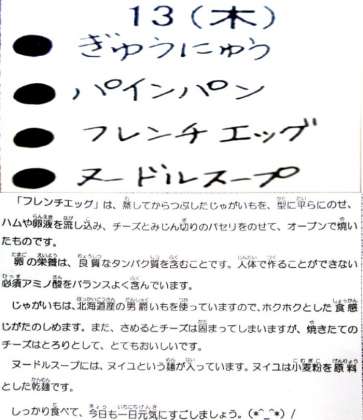 13(木)
ぎゅうにゅう
パインパン
フレンチエッグ
ヌードルスープ
「フレンチエッグ」は、蒸してからつぶしたじゃがいもを、型に平らにのせ、
ハムや卵液を流し込み、チーズとみじん切りのパセリをのせて、オーブンで焼い
たものです。
卵の栄養は、良質なタンパク質を含むことです。人体で作ることができない
必須アミノ酸をバランスよく含んでいます。
じゃがいもは、北海道産の男爵いもを使っていますので、ホクホクとした食感
がたのしめます。また、さめるとチーズは固まってしまいますが、焼きたての
チーズはとろりとして、とてもおいしいです。
ヌードルスープには、ヌイユという麺が入っています。ヌイユは小麦粉を原料
とした乾麺です。
しっかり食べて、今日も一日元気にすごしましょう。(*^_^*)/